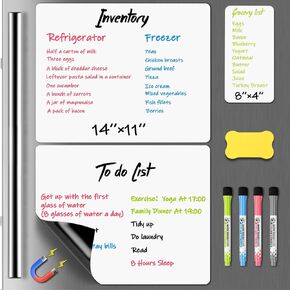 Inventory
Refrigerator
Half a carton of milk
Three eggs
A block of cheddar cheese
Leftover pasta salad in a container
One cucumber
A bunch of carrots
A jar of mayonnaise
A pack of bacon
Freezer
Peas
Chicken breasts
Ground beef
Pizza
Ice cream
Mixed vegetables
Fish fillets
Berries
14"×11"
Grocery List
Eggs
Milk
Bacon
Blueberry
Yogurt
Oatmeal
Butter
Salad
Juice
Turkey Breast
8"×4"
To do List
Get up with the first
glass of water
(8 glasses of water a day)
pay bills
Exercise: Yoga At 17:00
Family Dinner At 19:00
Tidy up
Do laundry
Read
8 Hours Sleep